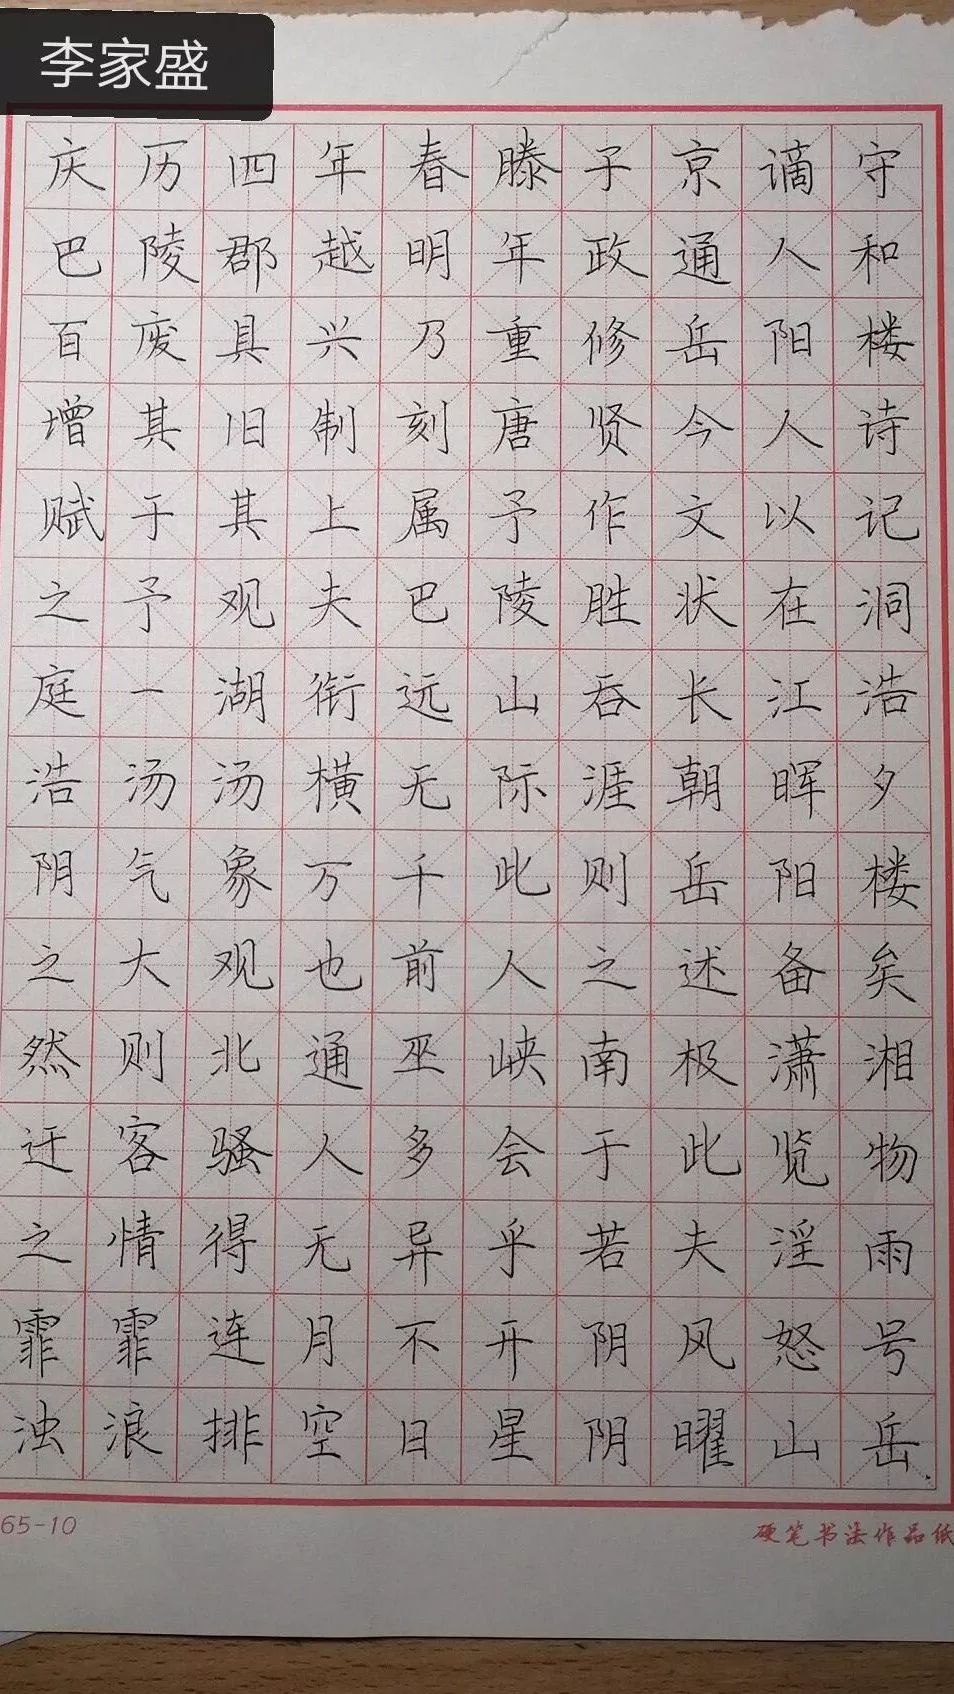 李家盛
庆历四年春滕子京谪守
巴陵郡越明年政通人和
百废具兴乃重修岳阳楼
增其旧制刻唐贤今人诗
赋于其上属予作文以记
之予观夫巴陵胜状在洞
庭一湖衔远山吞长江浩
浩汤汤横无际涯朝晖夕
阴气象万千此则岳阳楼
之大观也前人之述备矣
然则北通巫峡南极潇湘
迁客骚人多会于此览物
之情得无异乎若夫淫雨
霏霏连月不开阴风怒号
浊浪排空日星阴曜山岳
65-10
硬笔书法作品纸